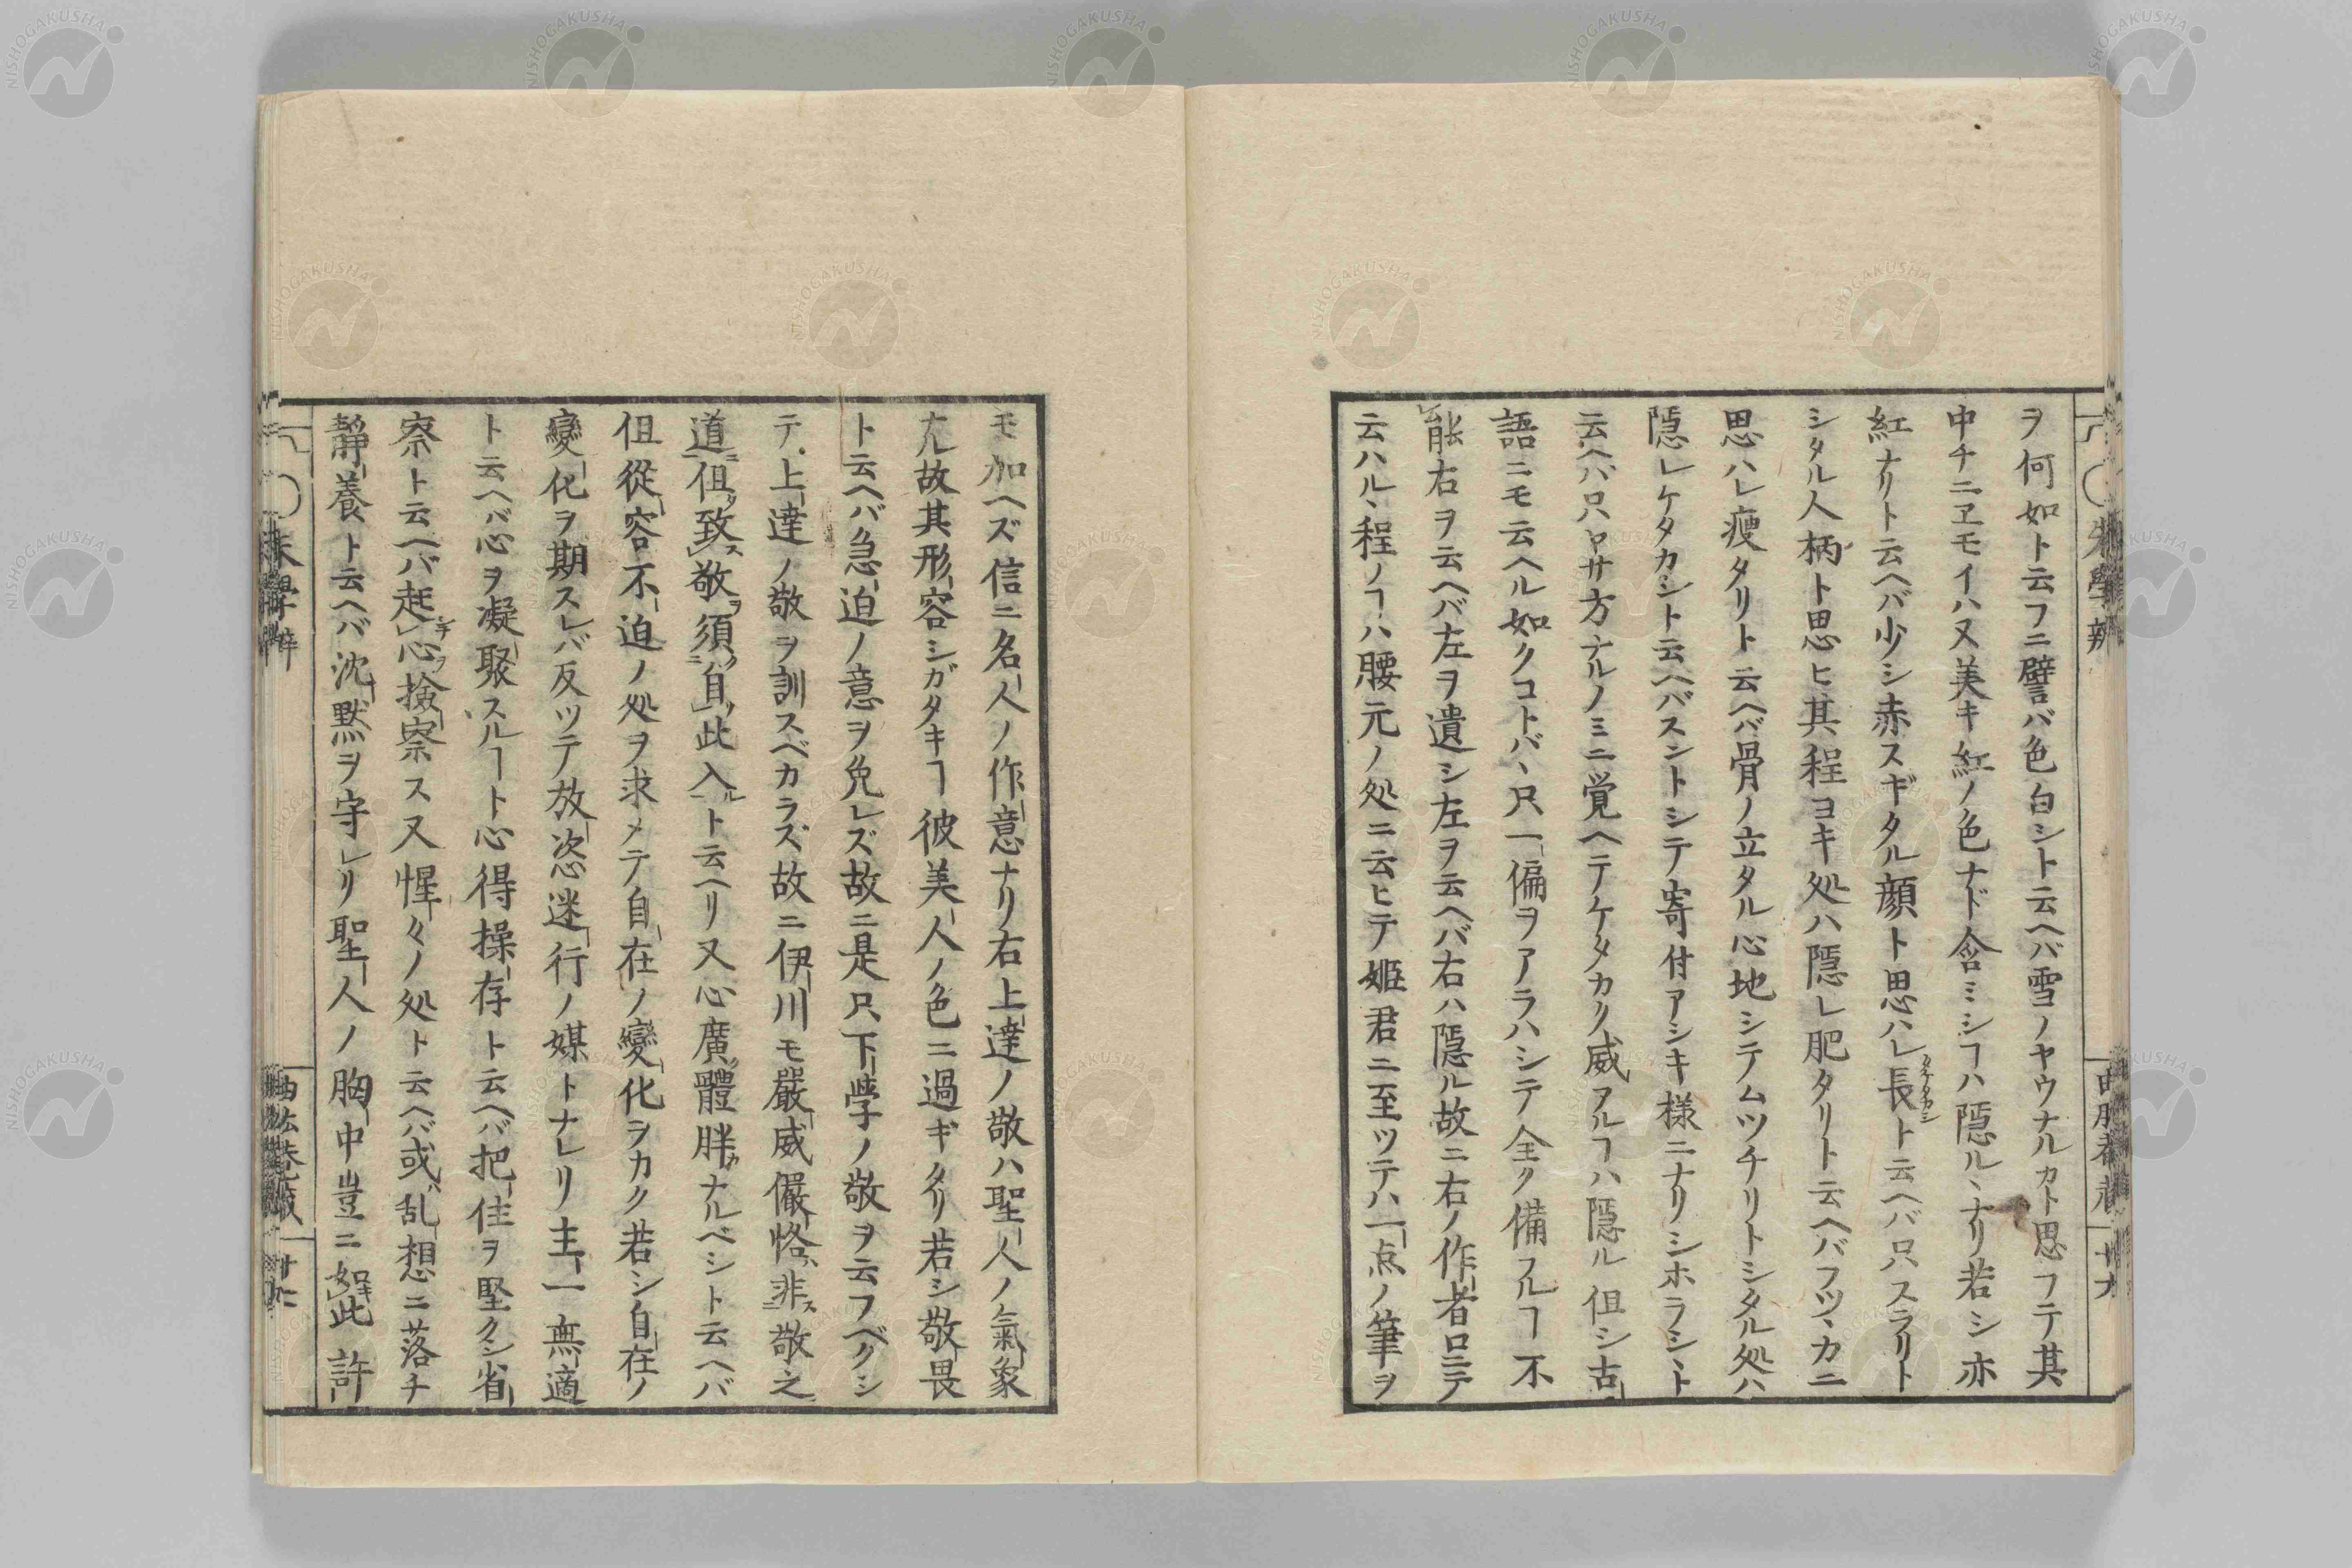 ヲ何如ト云フニ譬バ色白シト云ヘバ雪ノヤウナルカト思フテ其
中チニヱモイハ又美キ紅ノ色ナド含ミシヿハ隠ルヽナリ若シ亦
紅ナリト云ヘバ少シ赤スギタル顔ト思ハレ長トタケタカシ云ヘバ只スラリト
シタル人柄ト思ヒ其程ヨキ処ハ隠レ肥タリト云ヘバフツヽカニ
思ハレ痩タリト云ヘバ骨ノ立タル心地シテムツチリトシタル処ハ
隠レケタカシト云ヘバスントシテ寄付アシキ様ニナリシホラシヽト
云ヘバ只ヤサ方ナルノミニ覚ヘテケタカク威アルヿハ隠ル但シ古
語ニモ云ヘル如クコトバヽ只一偏ヲアラハシテ全ク備フルヿ不
能右ヲ云ヘバ左ヲ遺シ左ヲ云ヘバ右ハ隠ル故ニ右ノ作者ロニテ
云ハルヽ程ノヿハ腰元ノ処ニ云ヒテ姫君ニ至ツテハ一点ノ筆ヲ
モ加ヘズ信ニ名人ノ作意ナリ右上達ノ敬ハ聖人ノ氣象
ナル故其形容シガタキヿ彼美人ノ色ニ過ギタリ若シ敬畏
ト云ヘバ急迫ノ意ヲ免レズ故ニ是只下學ノ敬ヲ云フベクシ
テ上達ノ敬ヲ訓スベカラズ故ニ伊川モ嚴威儼恪ハ非ス敬之
道ニ但致ス敬ヲ須ク自リ此入ルト云ヘリ又心廣ク體胖カナルベシト云ヘバ
但從容不迫ノ処ヲ求メテ自在ノ變化ヲカク若シ自在ノ
變化ヲ期スレバ反ツテ放恣迷行ノ媒トナレリ主一無適
ト云ヘバ心ヲ凝聚スルヿト心得操存ト云ヘバ把住ヲ堅クシ省
察ト云ヘバ起シテ心ヲ撿察ス又惺々ノ処ト云ヘバ或ハ乱想ニ落チ
靜養ト云ヘバ沈黙ヲ守レリ聖人ノ胸中豈ニ如キ此許
朱學辨